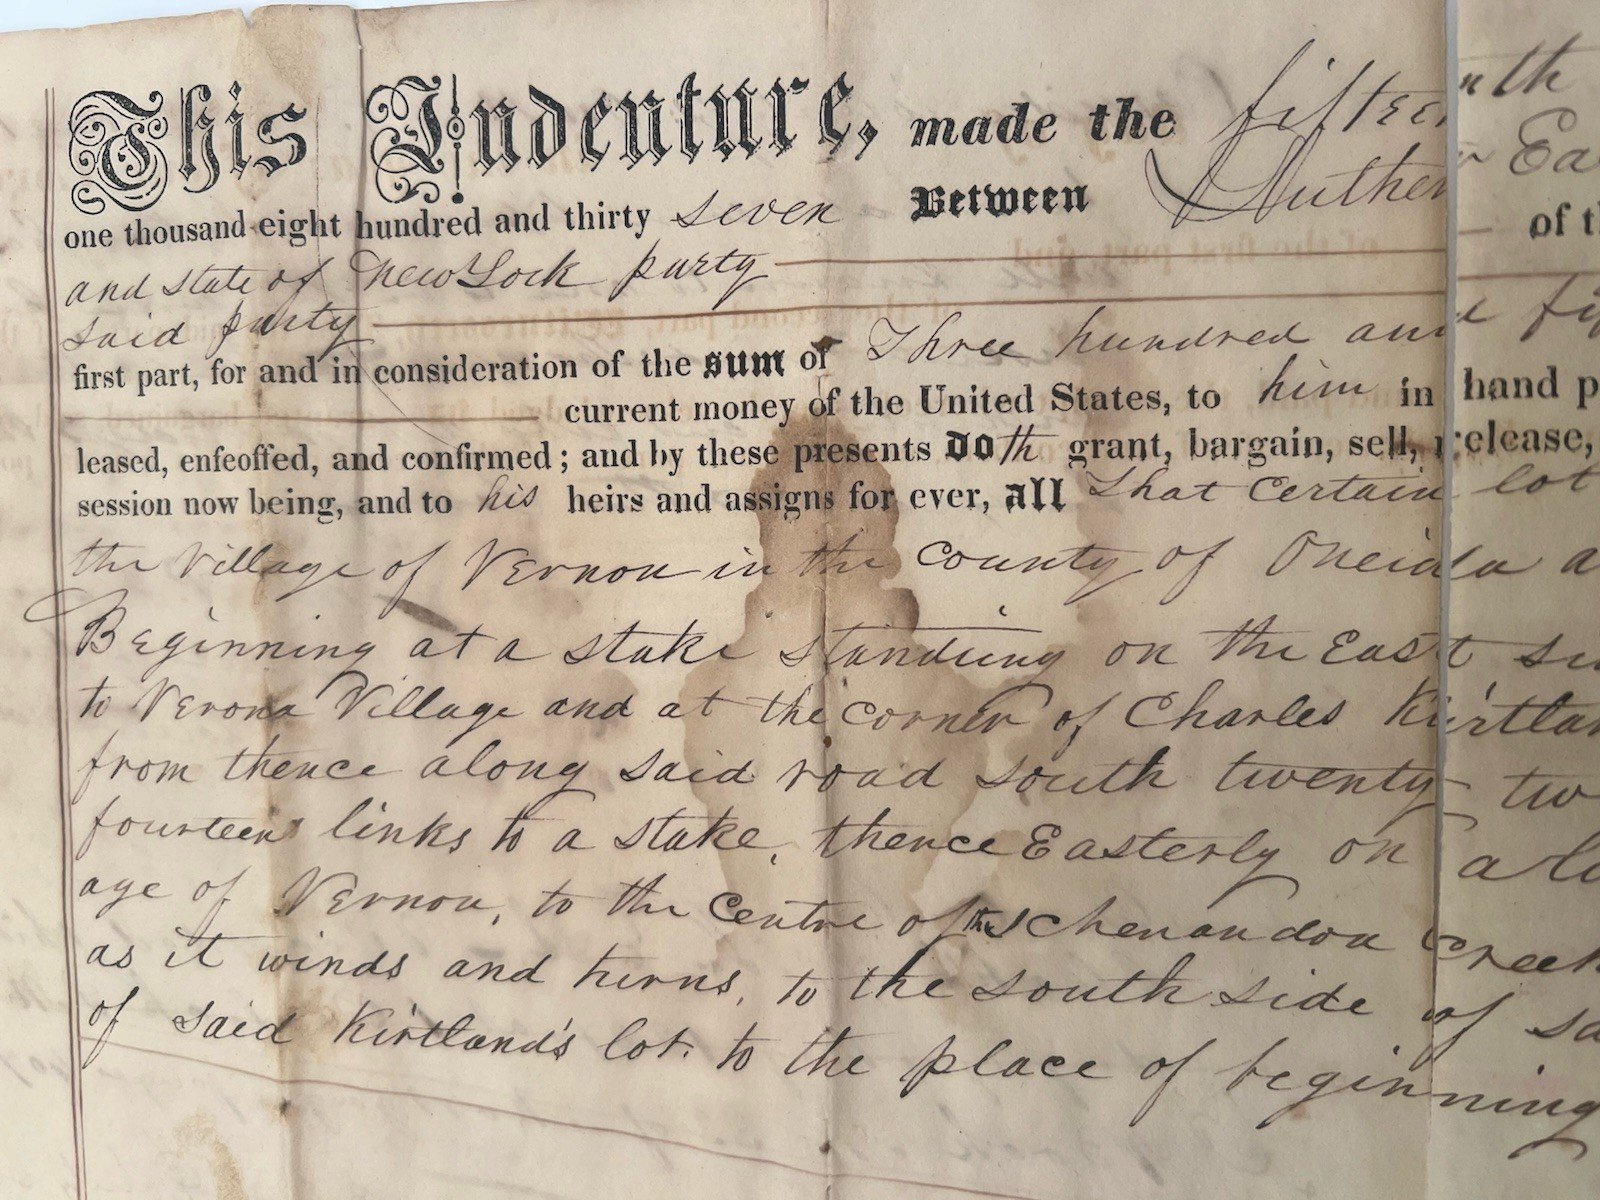 This Indenture, made the fifteenth
one thousand eight hundred and thirty seven Between Luther Ea
and state of New York party of th
said party
first part, for and in consideration of the sum of Three hundred and fif
current money of the United States, to him in hand p
leased, enfeoffed, and confirmed; and by these presents doth grant, bargain, sell, release,
session now being, and to his heirs and assigns for ever, all that certain lot
the Village of Vernon in the County of Oneida a
Beginning at a stake standing on the East si
to Verona Village and at the corner of Charles Kirtlan
from thence along said road south twenty tw
fourteen links to a stake, thence Easterly on a l
age of Vernon, to the Centre of the Schenandoa Creek
as it winds and turns, to the south side of sa
of said Kirtland's lot. to the place of beginning